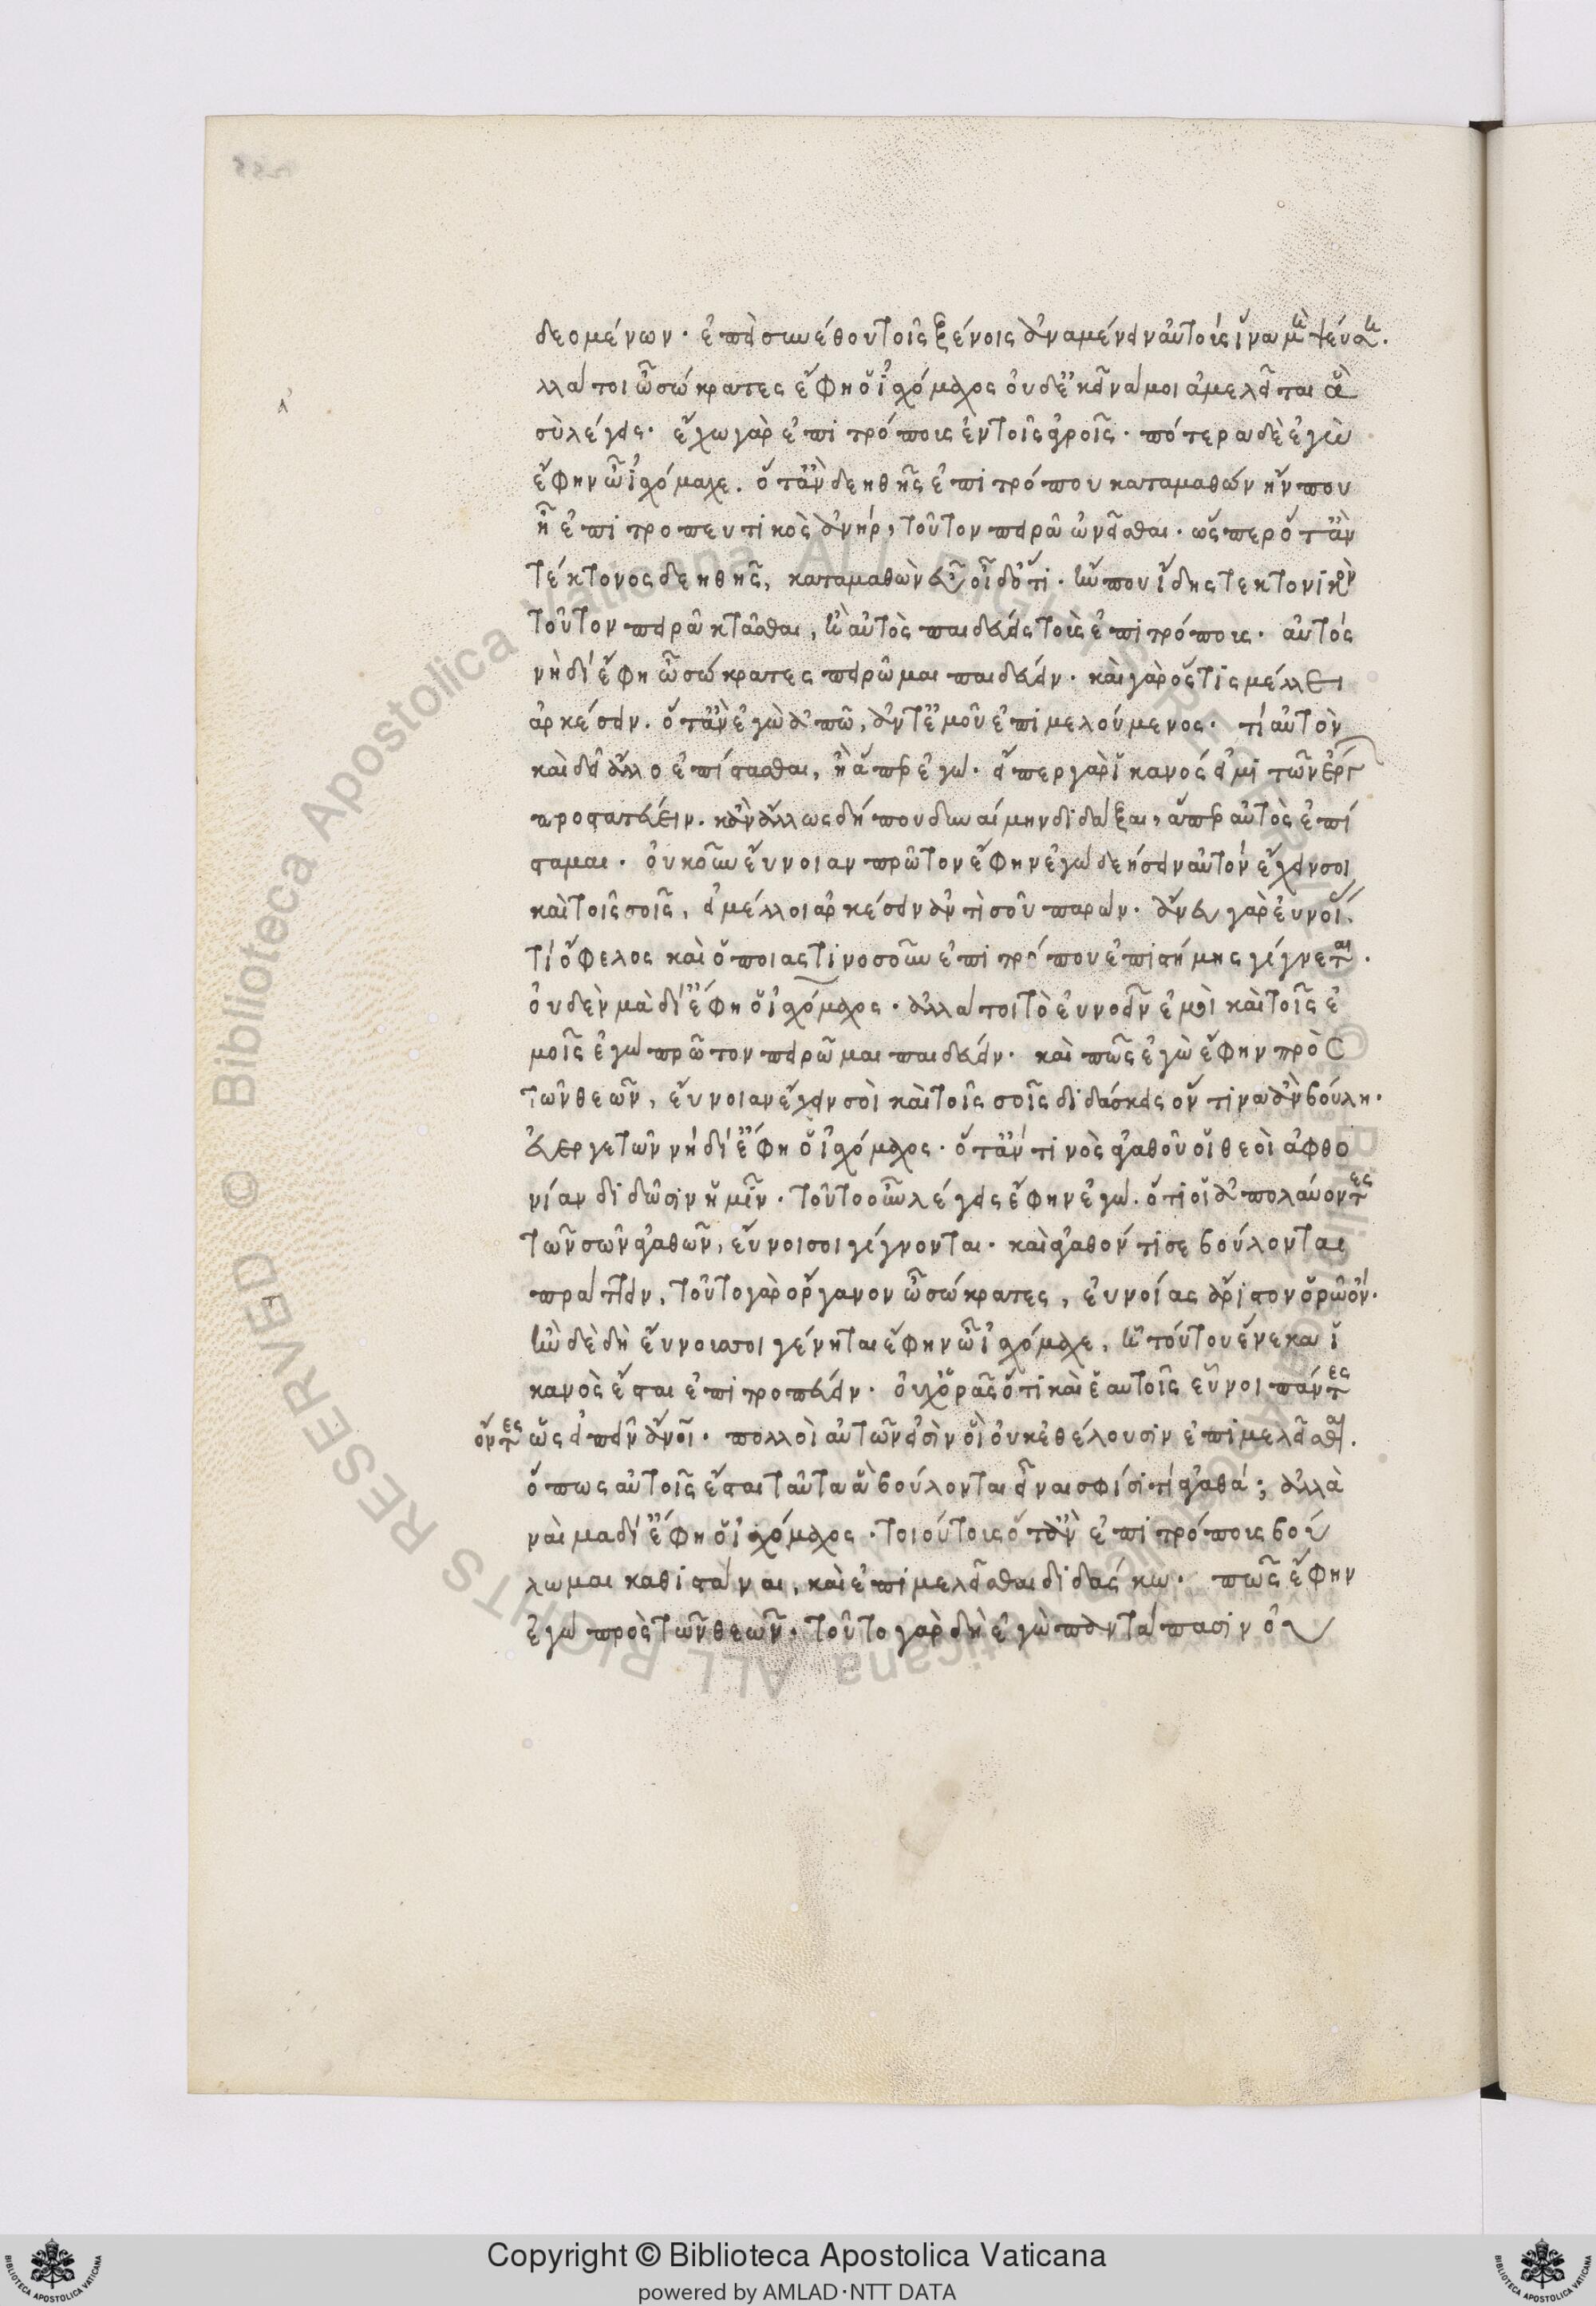 δεομένων· ἐπεὶ συνέθου τοῖς ξένοις ἀναμένειν αὐτοὺς ἵνα μὴ ψεύσῃ.
λλά τοι ὦ σώκρατες ἔφη ὁ ἰσχόμαχος οὐδ' ἐκεῖνά μοι ἀμελεῖται ἃ
σὺ λέγεις· ἔχω γὰρ ἐπιτρόπους ἐν τοῖς ἀγροῖς· πότερα δὲ ἐγὼ
ἔφην ὦ ἰσχόμαχε. ὅταν δεηθῇς ἐπιτρόπου καταμαθών ἤν που
ᾖ ἐπιτροπευτικὸς ἀνήρ, τοῦτον πειρᾷ ὠνεῖσθαι· ὥσπερ ὅταν
τέκτονος δεηθῇς, καταμαθὼν εὖ οἶδ' ὅτι· ἤν που ἴδῃς τεκτονικὸν
τοῦτον πειρᾷ κτᾶσθαι, ἢ αὐτὸς παιδεύεις τοὺς ἐπιτρόπους· αὐτός
νὴ δί' ἔφη ὦ σώκρατες πειρῶμαι παιδεύειν· καὶ γὰρ ὅστις μέλλει
ἀρκέσειν. ὅταν ἐγὼ ἀπῶ, ἀντ' ἐμοῦ ἐπιμελούμενος· τί αὐτὸν
καὶ δεῖ ἄλλο ἐπίστασθαι, ἢ ἅπερ ἐγώ· εἴπερ γὰρ ἱκανός εἰμι τῶν ἔργ
προστατεύειν. κἂν ἄλλως δήπου δυναίμην διδάξαι, ἅπερ αὐτὸς ἐπί
σταμαι· οὐκοῦν εὔνοιαν πρῶτον ἔφην ἐγώ δεήσειν αὐτόν ἔχειν σοι
καὶ τοῖς σοῖς, εἰ μέλλοι ἀρκέσειν ἀντὶ σοῦ παρών· ἄνευ γὰρ εὐνοί.
τί ὄφελος καὶ ὁποίας τινοσοῦν ἐπιτρόπου ἐπιστήμης γίγνεται.
οὐδὲν μὰ δί' ἔφη ὁ ἰσχόμαχος· ἀλλά τοι τὸ εὐνοεῖν ἐμοὶ καὶ τοῖς ἐ
μοῖς ἐγώ πρῶτον πειρῶμαι παιδεύειν· καὶ πῶς ἐγὼ ἔφην πρὸς
τῶν θεῶν, εὔνοιαν ἔχειν σοὶ καὶ τοῖς σοῖς διδάσκεις ὅντινα ἂν βούλῃ.
εὐεργετῶν νή δί' ἔφη ὁ ἰσχόμαχος· ὅταν τινὸς ἀγαθοῦ οἱ θεοὶ ἀφθο
νίαν διδῶσιν ἡμῖν· τοῦτο οὖν λέγεις ἔφην ἐγώ. ὅτι οἱ ἀπολαύοντες
τῶν σῶν ἀγαθῶν, εὖνοί σοι γίγνονται· καὶ ἀγαθόν τί σε βούλονται
πράττειν, τοῦτο γὰρ ὄργανον ὦ σώκρατες, εὐνοίας ἄριστον ὁρῶ ὄν.
ἢν δὲ δὴ εὔνους σοι γένηται ἔφην ὦ ἰσχόμαχε, ἦ τούτου ἕνεκα ἱ
κανὸς ἔσται ἐπιτροπεύειν· οὐχ ὁρᾷς ὅτι καὶ ἑαυτοῖς εὖνοι πάντες
ὄντες ὡς εἰπεῖν ἄνοι. πολλοὶ αὐτῶν εἰσὶν οἳ οὐκ ἐθέλουσιν ἐπιμελεῖσθαι.
ὅπως αὐτοῖς ἔσται ταῦτα ἃ βούλονται εἶναι σφίσι τἀγαθά; ἀλλὰ
ναὶ μὰ δί' ἔφη ὁ ἰσχόμαχος· τοιούτους ὅταν ἐπιτρόπους βού
λωμαι καθιστάναι, καὶ ἐπιμελεῖσθαι διδάσκω· πῶς ἔφην
ἐγώ πρὸς τῶν θεῶν· τοῦτο γὰρ δὴ ἐγὼ παντάπασιν οὐ